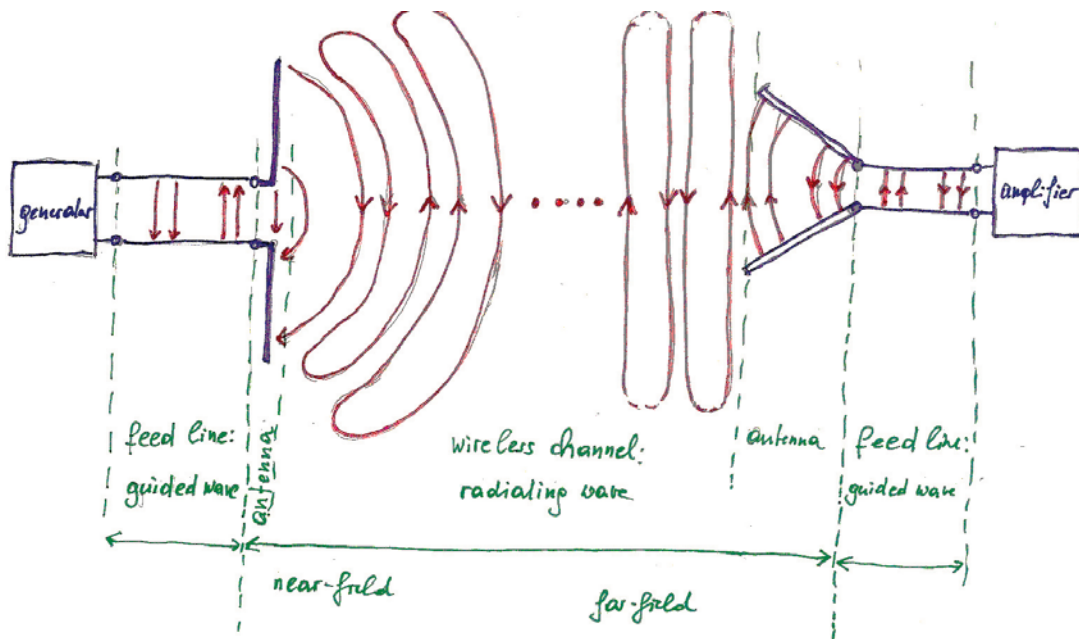 generator
amplifier
feed line:
guided wave
antenna
wireless channel:
radiating wave
antenna
feed line:
guided wave
near-field
far-field